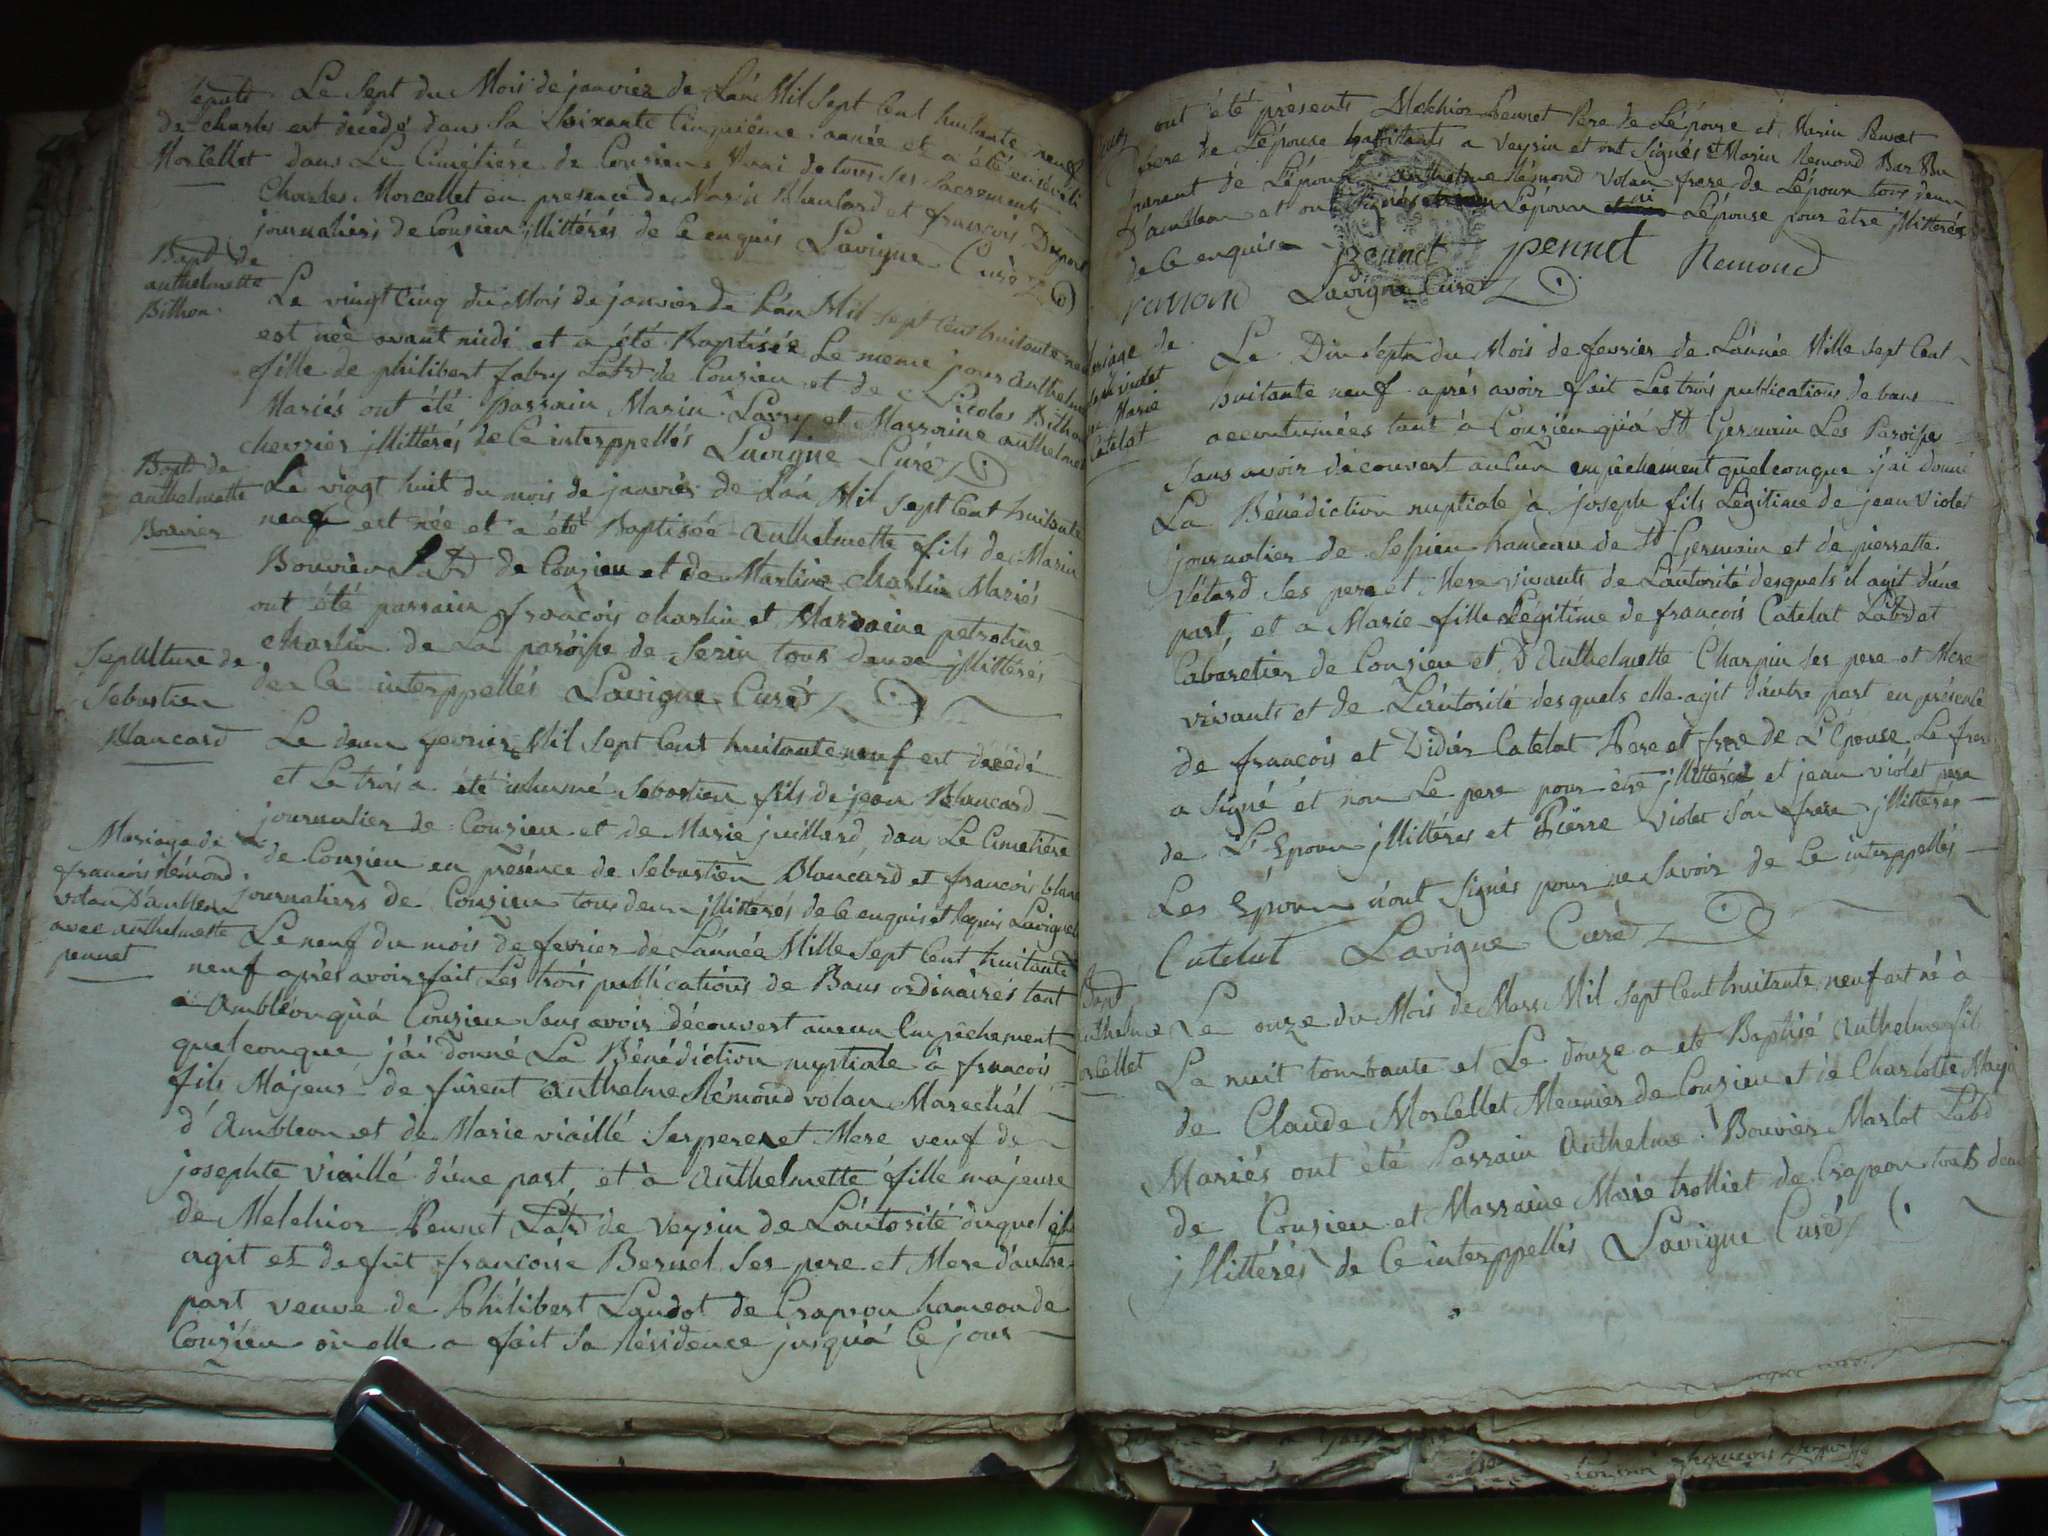 Sepult.
de charles
Morcellet
Le Sept du Mois de janvier de L'án Mil Sept Cent huitante neuf
est décédé dans Sa Soixante Cinquiéme année et a été enséveli
dans Le Cimétiére de Conzieu Muni de tous Ses Sacrements
Charles Morcellet en presence de Marin Blancard et françois
journaliers de Conzieu jllittérés de Ce enquis Lavigne Curé
Bapt. de
anthelmette
Bithon.
Le vingt Cinq du Mois de janvier de L'án Mil Sept Cent huitante neuf
est née avant midi et a été Baptisée Le meme jour anthelmette
fille de philibert fabry Labr de Conzieu et de Nicolas Bithon
Mariés ont été parrain Marin Larry et Marraine anthelmette
chevrier jllittérés de Ce interppellés Lavigne Curé
Bapt. de
anthelmette
Bouvier
Le vingt huit du mois de janvier de L'án Mil Sept Cent huitante
neuf est née et a été Baptisée Anthelmette fils de Marin
Bouvier Labr de Conzieu et de Martine charlin Mariés
ont été parrain françois charlin et Marraine petroline
charlin de La paroisse de Serin tous deux jllittérés
de Ce interppellés Lavigne Curé
Sepulture de
Sebastien
Blancard
Le deux fevrier Mil Sept Cent huitante neuf est décédé
et Le trois a été inhumé Sebastien fils de jean Blancard
journalier de Conzieu et de Marie juillard, dans Le Cimetiére
de Conzieu en présence de Sebastien Blancard et françois blanc
journaliers de Conzieu tous deux jllittérés de Ce enquis et requis Lavigne
Mariage de
françois Rémond
volan D'ambleon
avec anthelmette
pennet
Le neuf du mois de fevrier de L'année Mille Sept Cent huitante
neuf aprés avoir fait Les trois publications de Bans ordinaires tant
a Ambléon qu'á Conzieu Sans avoir découvert aucun Empêchement
quelconque j'ai donné La Bénédiction nuptiale à françois
fils Majeur de fûrent anthelme Rémond volan Marechál
d'Ambleon et de Marie viaillé Ses pere et Mere veuf de
josephte viaillé d'une part, et à Anthelmette fille majeure
de Melchior Pennet Labr de Veysin de L'autorité duquel elle
agit et de fut françoise Bernel Ses pere et Mere d'autre
part veuve de Philibert Laudot de Crapeou hameau de
Conzieu où elle a fait Sa Résidence jusqu'á Ce jour
ont été présents Melchior Pennet Pere de L'épouse et Marin Pennet
frere de L'épouse habitants a Veysin et ont Signés et Marin Remond
parent de L'époux anthelme Rémond volan frere de L'époux tous deux
d'ambleon et ont L'époux L'épouse pour être jllittérés
de Ce enquis
Pennet pennet Remond
remond Lavigne Curé
Mariage de
Marie
Catelat
Le Dix Sept du Mois de fevrier de L'année Mille Sept Cent
huitante neuf aprés avoir fait Les trois publications de bans
accoutumées tant à Conzieu qu'á St Germain Les Paroisse
Sans avoir découvert aucun empêchement quelconque j'ai donné
La Bénédiction nuptiale à joseph fils Légitime de jean Violet
journalier de Sessieu hameau de St Germain et de pierrette
Vétard Ses pere et Mere vivants de L'autorité desquels il agit d'une
part, et a Marie fille Légitime de françois Catelat Labr et
Cabaretier de Conzieu et D'Anthelmette Charpin Ses pere et Mere
vivants et de L'autorité desquels elle agit d'autre part en présence
de françois et Didier Catelat Pere et frere de L'épouse Le frere
a Signé et non Le pere pour être jllittérés et jean violet pere
de L'Epoux jllittéres et Pierre Violet Son frere jllittérés
Les Epoux n'ont Signés pour ne Savoir de Ce interppellés
Catelat Lavigne Curé
Bapt
Le onze du Mois de Mars Mil Sept Cent huitante neuf est né à
La nuit tombante et Le douze a été Baptisé Anthelme fils
de Claude Morcellet Meunier de Conzieu et de Charlotte
Mariés ont été Parrain Anthelme Bouvier Marlot Labr
de Conzieu et Marraine Marie trolliet de Crapeou touts deux
jllittérés de Ce interppellés Lavigne Curé